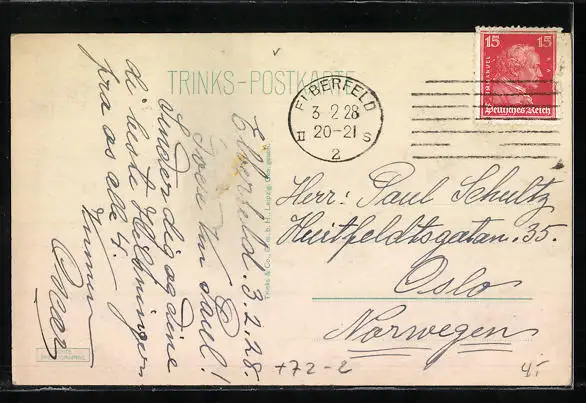 TRINKS-POSTKARTE
15 15
IMMANUEL
Deutsches Reich
ELBERFELD
3.2.28
II 20-21 S
2
Elberfeld. 3.2.28.
Vän Paul!
Sender dig og dine
de beste Hilsninger
fra os alle 4.
Trinks & Co., G. m. b. H., Leipzig
Herr: Paul Schultz
Huitfeldtsgatan. 35.
Oslo
Norwegen
+72-2
4.-